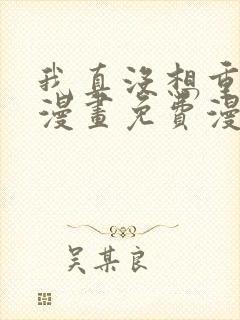 我真没想重
漫画免费漫
吴某良